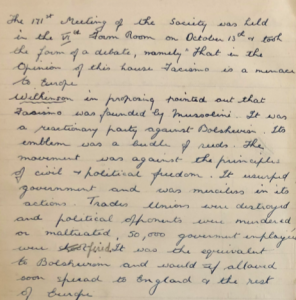 The 131st Meeting of the Society was held
in the VIth Form Room on October 13th & took
the form of a debate, namely "That in the
Opinion of this house Fascismo is a menace
to Europe
Wilkinson in proposing pointed out that
Fascismo was founded by Mussolini. It was
a reactionary party against Bolshevism. Its
emblem was a bundle of reeds. The
movement was against the principles
of civil & political freedom. It usurped
government and was merciless in its
actions. Trades Unions were destroyed
and political opponents were murdered
or maltreated, 50,000 government employees
were fired. It was the equivalent
to Bolshevism and would if allowed
soon spread to England & the rest
of Europe